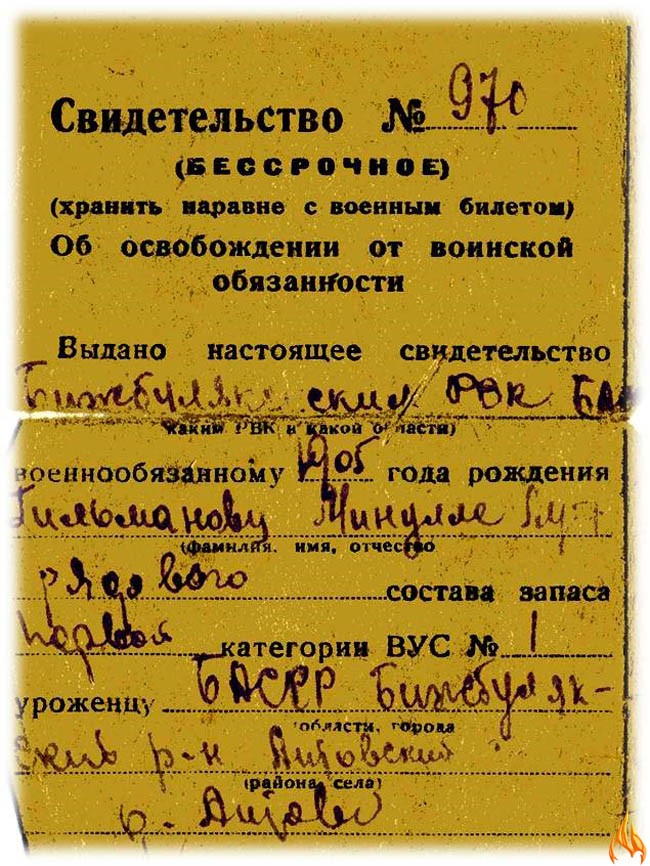 Свидетельство № 970
(БЕССРОЧНОЕ)
(хранить наравне с военным билетом)
Об освобождении от воинской
обязанности
Выдано настоящее свидетельство
Бижбулякским РВК БА
каким РВК и какой области)
военнообязанному 1905 года рождения
Гильманову Минулле
(фамилия, имя, отчество
рядового состава запаса
первой категории ВУС № 1
уроженцу БАССР Бижбуляк-
области, города
ский р-н Аитовский
(района, села)